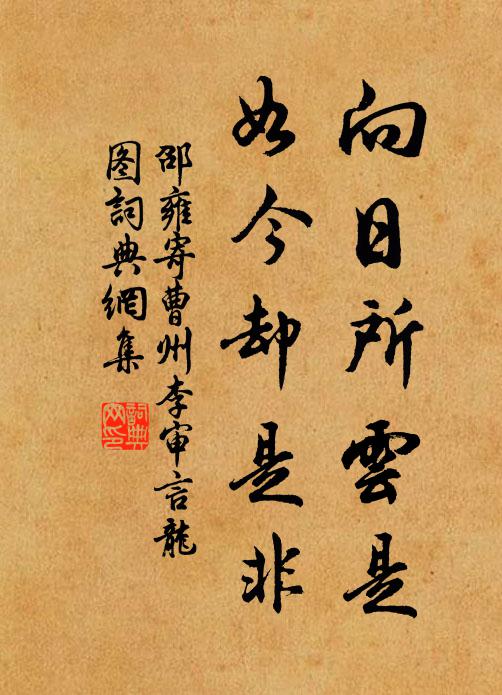 向日所雲是
如今却是非
邵雍寄曹州李审言龍
图詞典網集
詞典
网印